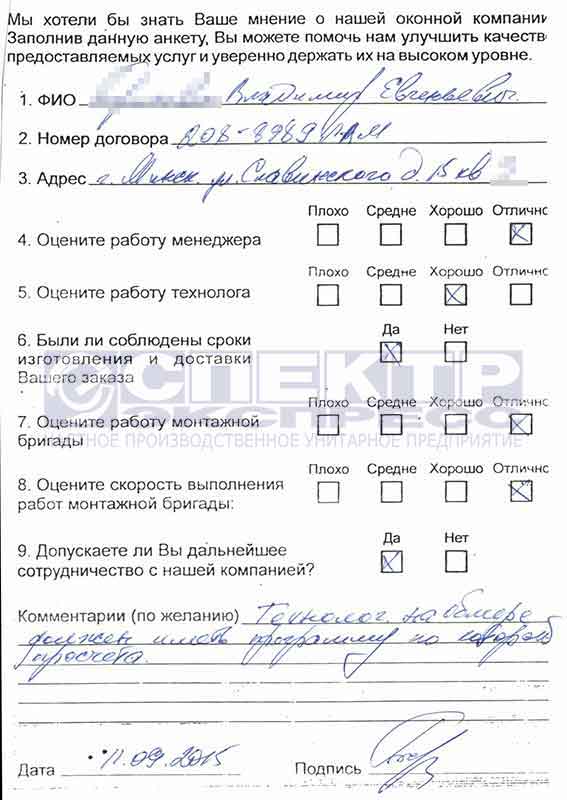 Мы хотели бы знать Ваше мнение о нашей оконной компании
Заполнив данную анкету, Вы можете помочь нам улучшить качеств
предоставляемых услуг и уверенно держать их на высоком уровне.
1. ФИО Владимир Евгеньевич
2. Номер договора
3. Адрес г. Минск. ул. Славинского д. 15 кв
Плохо Средне Хорошо Отлично
4. Оцените работу менеджера
Плохо Средне Хорошо Отлично
5. Оцените работу технолога
Да Нет
6. Были ли соблюдены сроки
изготовления и доставки
Вашего заказа
СПЕКТР
ЭКСПРЕСС
ЧАСТНОЕ ПРОИЗВОДСТВЕННОЕ УНИТАРНОЕ ПРЕДПРИЯТИЕ
Плохо Средне Хорошо Отлично
7. Оцените работу монтажной
бригады
Плохо Средне Хорошо Отлично
8. Оцените скорость выполнения
работ монтажной бригады:
Да Нет
9. Допускаете ли Вы дальнейшее
сотрудничество с нашей компанией?
Комментарии (по желанию) Технолог на обмере
должен иметь программу по
просчета.
Дата 11.09.2015 Подпись